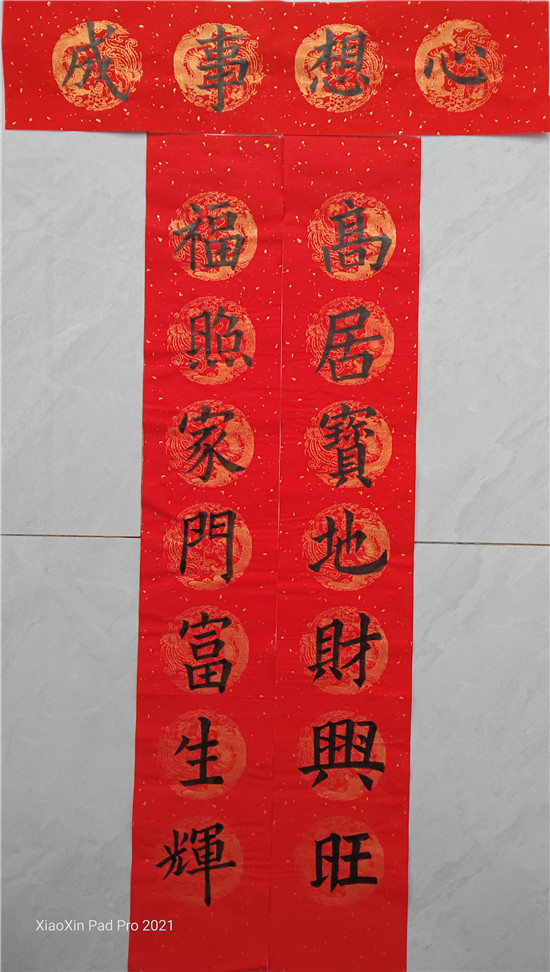 心想事成
高居寶地財興旺
福照家門富生輝
XiaoXin Pad Pro 2021